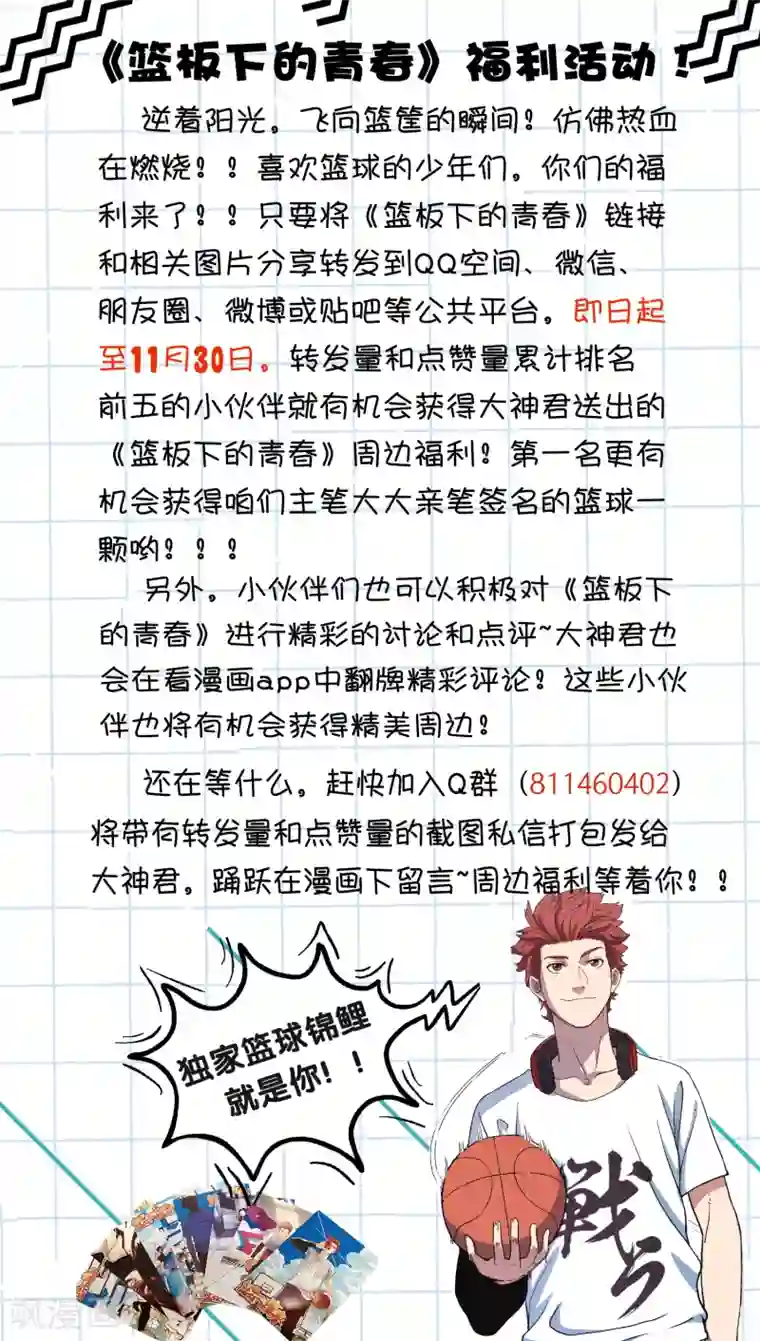 《篮板下的青春》福利活动！
逆着阳光。飞向篮筐的瞬间！仿佛热血
在燃烧！！喜欢篮球的少年们。你们的福
利来了！！只要将《篮板下的青春》链接
和相关图片分享转发到QQ空间、微信、
朋友圈、微博或贴吧等公共平台。即日起
至11月30日。转发量和点赞量累计排名
前五的小伙伴就有机会获得大神君送出的
《篮板下的青春》周边福利！第一名更有
机会获得咱们主笔大大亲笔签名的篮球一
颗哟！！！
另外。小伙伴们也可以积极对《篮板下
的青春》进行精彩的讨论和点评~大神君也
会在看漫画app中翻牌精彩评论！这些小伙
伴也将有机会获得精美周边！
还在等什么。赶快加入Q群（811460402）
将带有转发量和点赞量的截图私信打包发给
大神君。踊跃在漫画下留言~周边福利等着你！！
独家篮球锦鲤
就是你！！
戦う
飒漫画